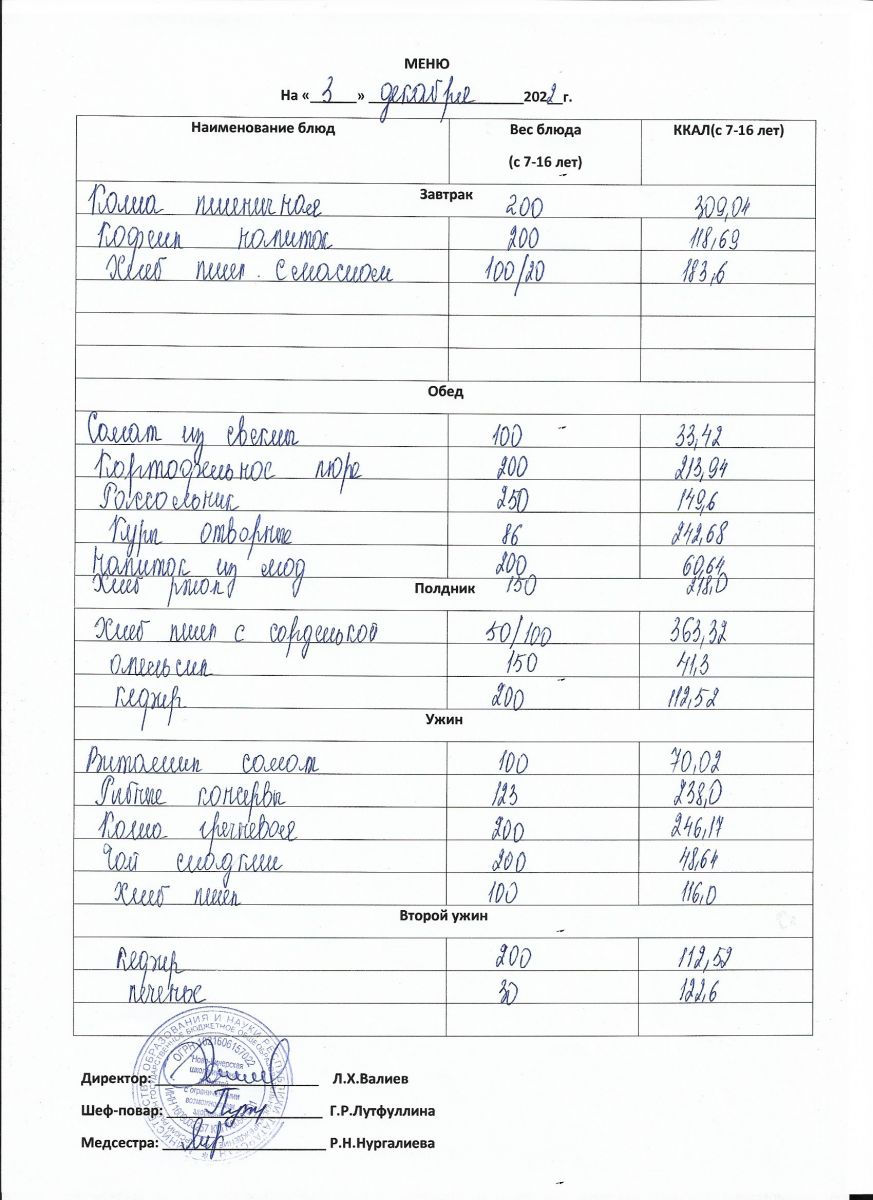 МЕНЮ
На « 3 » декабря 2022 г.
Наименование блюд Вес блюда (с 7-16 лет) ККАЛ(с 7-16 лет)
Завтрак
Каша пшеничная 200 309,04
Кофеин напиток 200 118,69
Хлеб пшен. с маслом 100/20 183,6
Обед
Салат из свеклы 100 33,42
Картофельное пюре 200 213,94
Рассольник 250 149,6
Куры отворные 86 242,68
Напиток из ягод 200 60,64
Хлеб ржан 150 218,0
Полдник
Хлеб пшен с сарделькой 50/100 363,32
апельсин 150 41,3
кефир 200 112,52
Ужин
Витамин салат 100 70,02
Рибные консервы 123 238,0
Каша гречневая 200 246,17
Чай сладкий 200 48,64
Хлеб пшен 100 116,0
Второй ужин
кефир 200 112,52
печенье 30 122,6
Директор: Л.Х.Валиев
Шеф-повар: Г.Р.Лутфуллина
Медсестра: Р.Н.Нургалиева